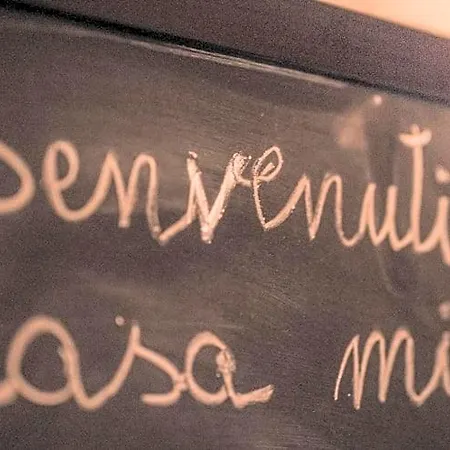 Benvenuti
casa mi